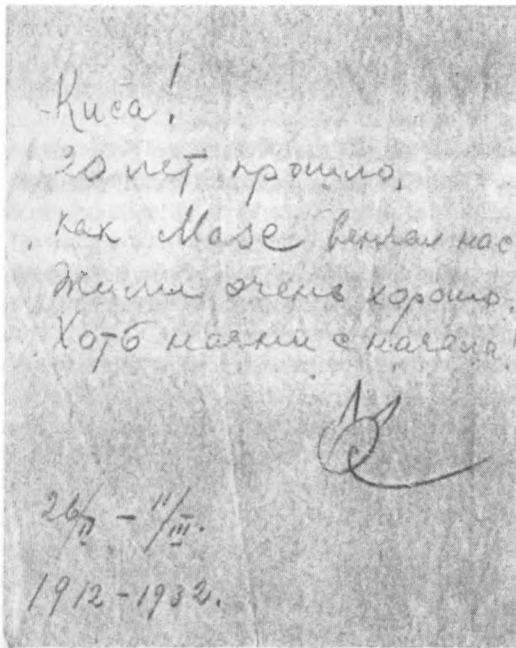 Киса!
20 лет прошло,
как Mase венчал нас.
Жили очень хорошо.
Хоть начни с начала!
26/II – 11/III.
1912–1932.